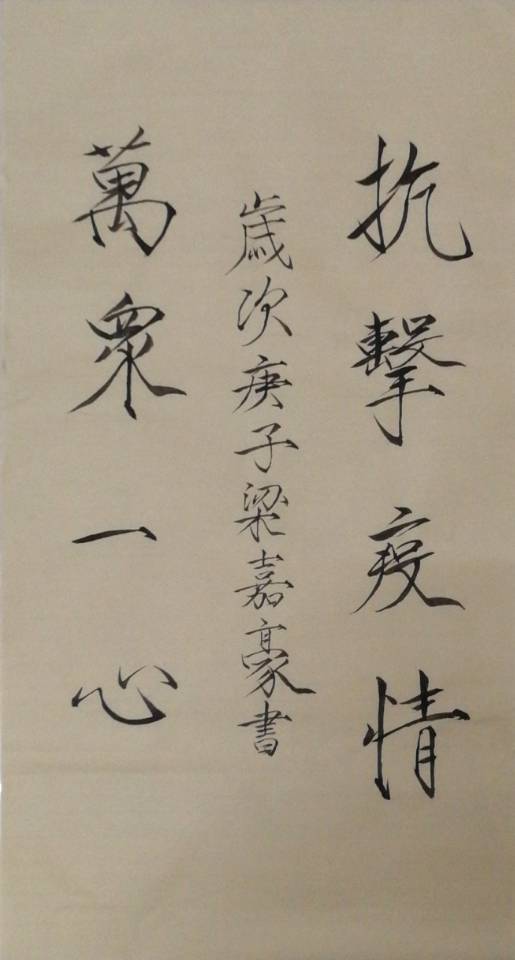 抗擊疫情
歲次庚子梁嘉豪書
萬眾一心